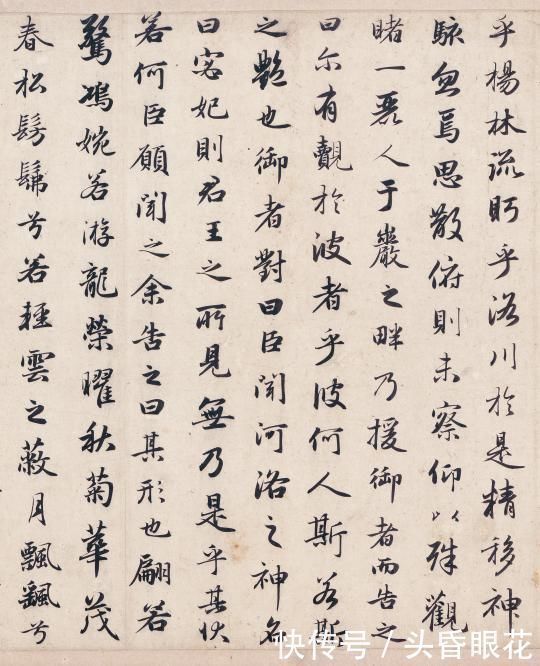 乎楊林流眄乎洛川於是精移神
駭忽焉思散俯則未察仰以殊觀
睹一麗人于巖之畔乃援御者而告之
曰尒有覿於彼者乎彼何人斯若斯
之艷也御者對曰臣聞河洛之神名
曰宓妃則君王之所見無乃是乎其狀
若何臣願聞之余告之曰其形也翩若
驚鴻婉若游龍榮曜秋菊華茂
春松髣髴兮若輕雲之蔽月飄颻兮
快传号/头昏眼花